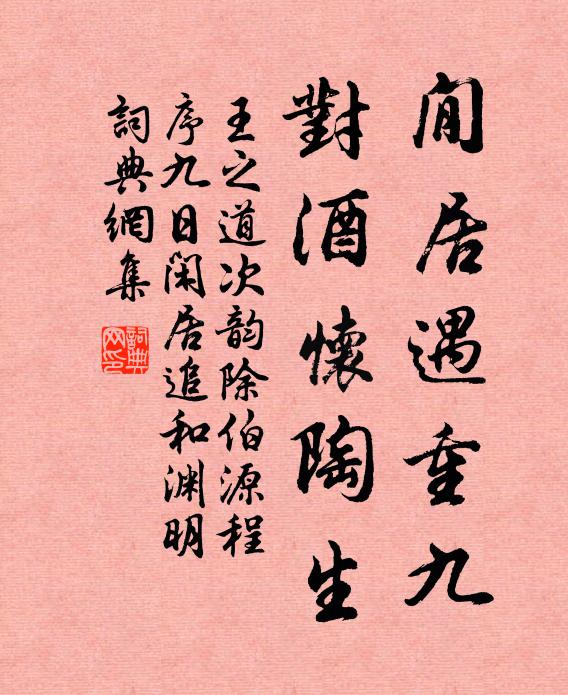 閒居遇重九
對酒懷陶生
王之道次韵除伯源程
序九日闲居追和渊明
詞典網集
詞典网印